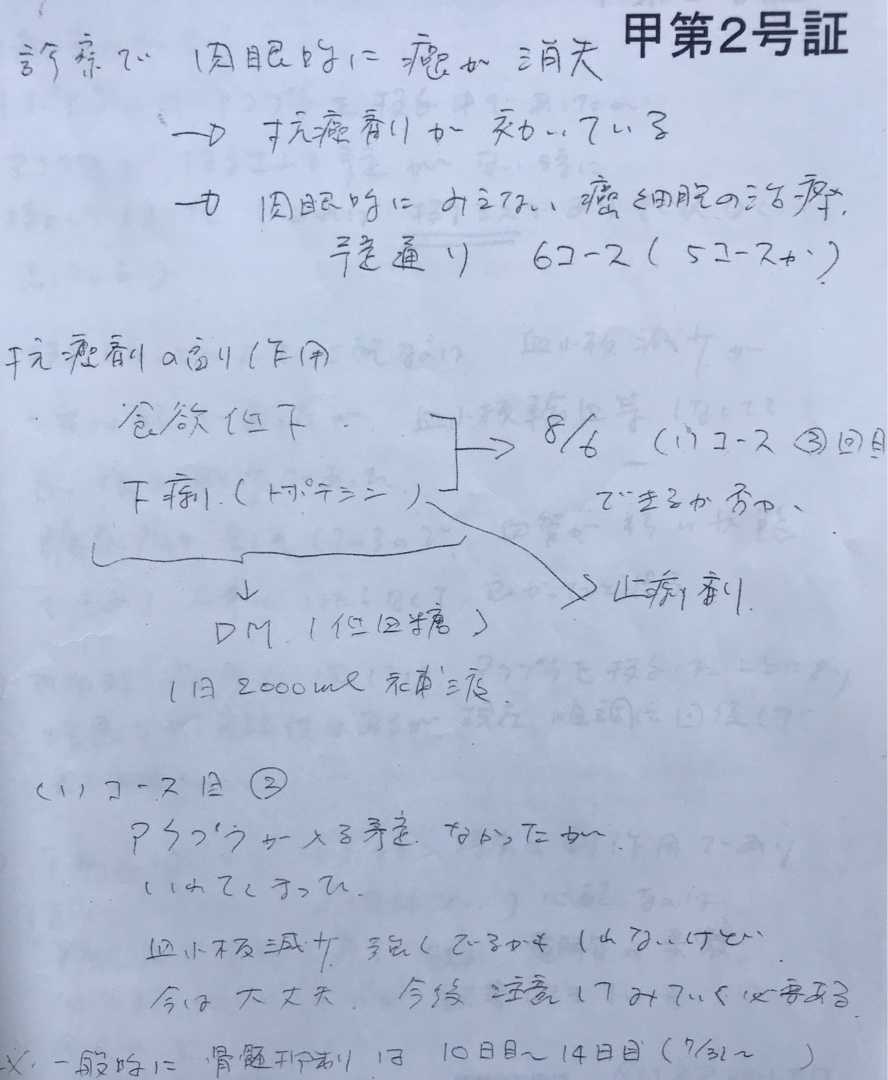 甲第2号証
診察で 肉眼的に 癌が 消失
→ 抗癌剤が 効いている
→ 肉眼的に みえない 癌細胞の治療。
予定通り 6コース(5コースか)
抗癌剤の副作用
・食欲低下
下痢。(トポテシン)
8/6 (1)コース ③回目
できるか否か、
→ 止痢剤。
↓
DM.(低血糖)
1日 2000ml 補液
(1)コース目 ②
アクプラが入る予定 なかったが
いれてしまって。
血小板減少 強くでるかもしれないけど
今は大丈夫。今後 注意してみていく必要ある。
※ 一般的に 骨髄抑制は 10日目〜14日目(7/31〜 )